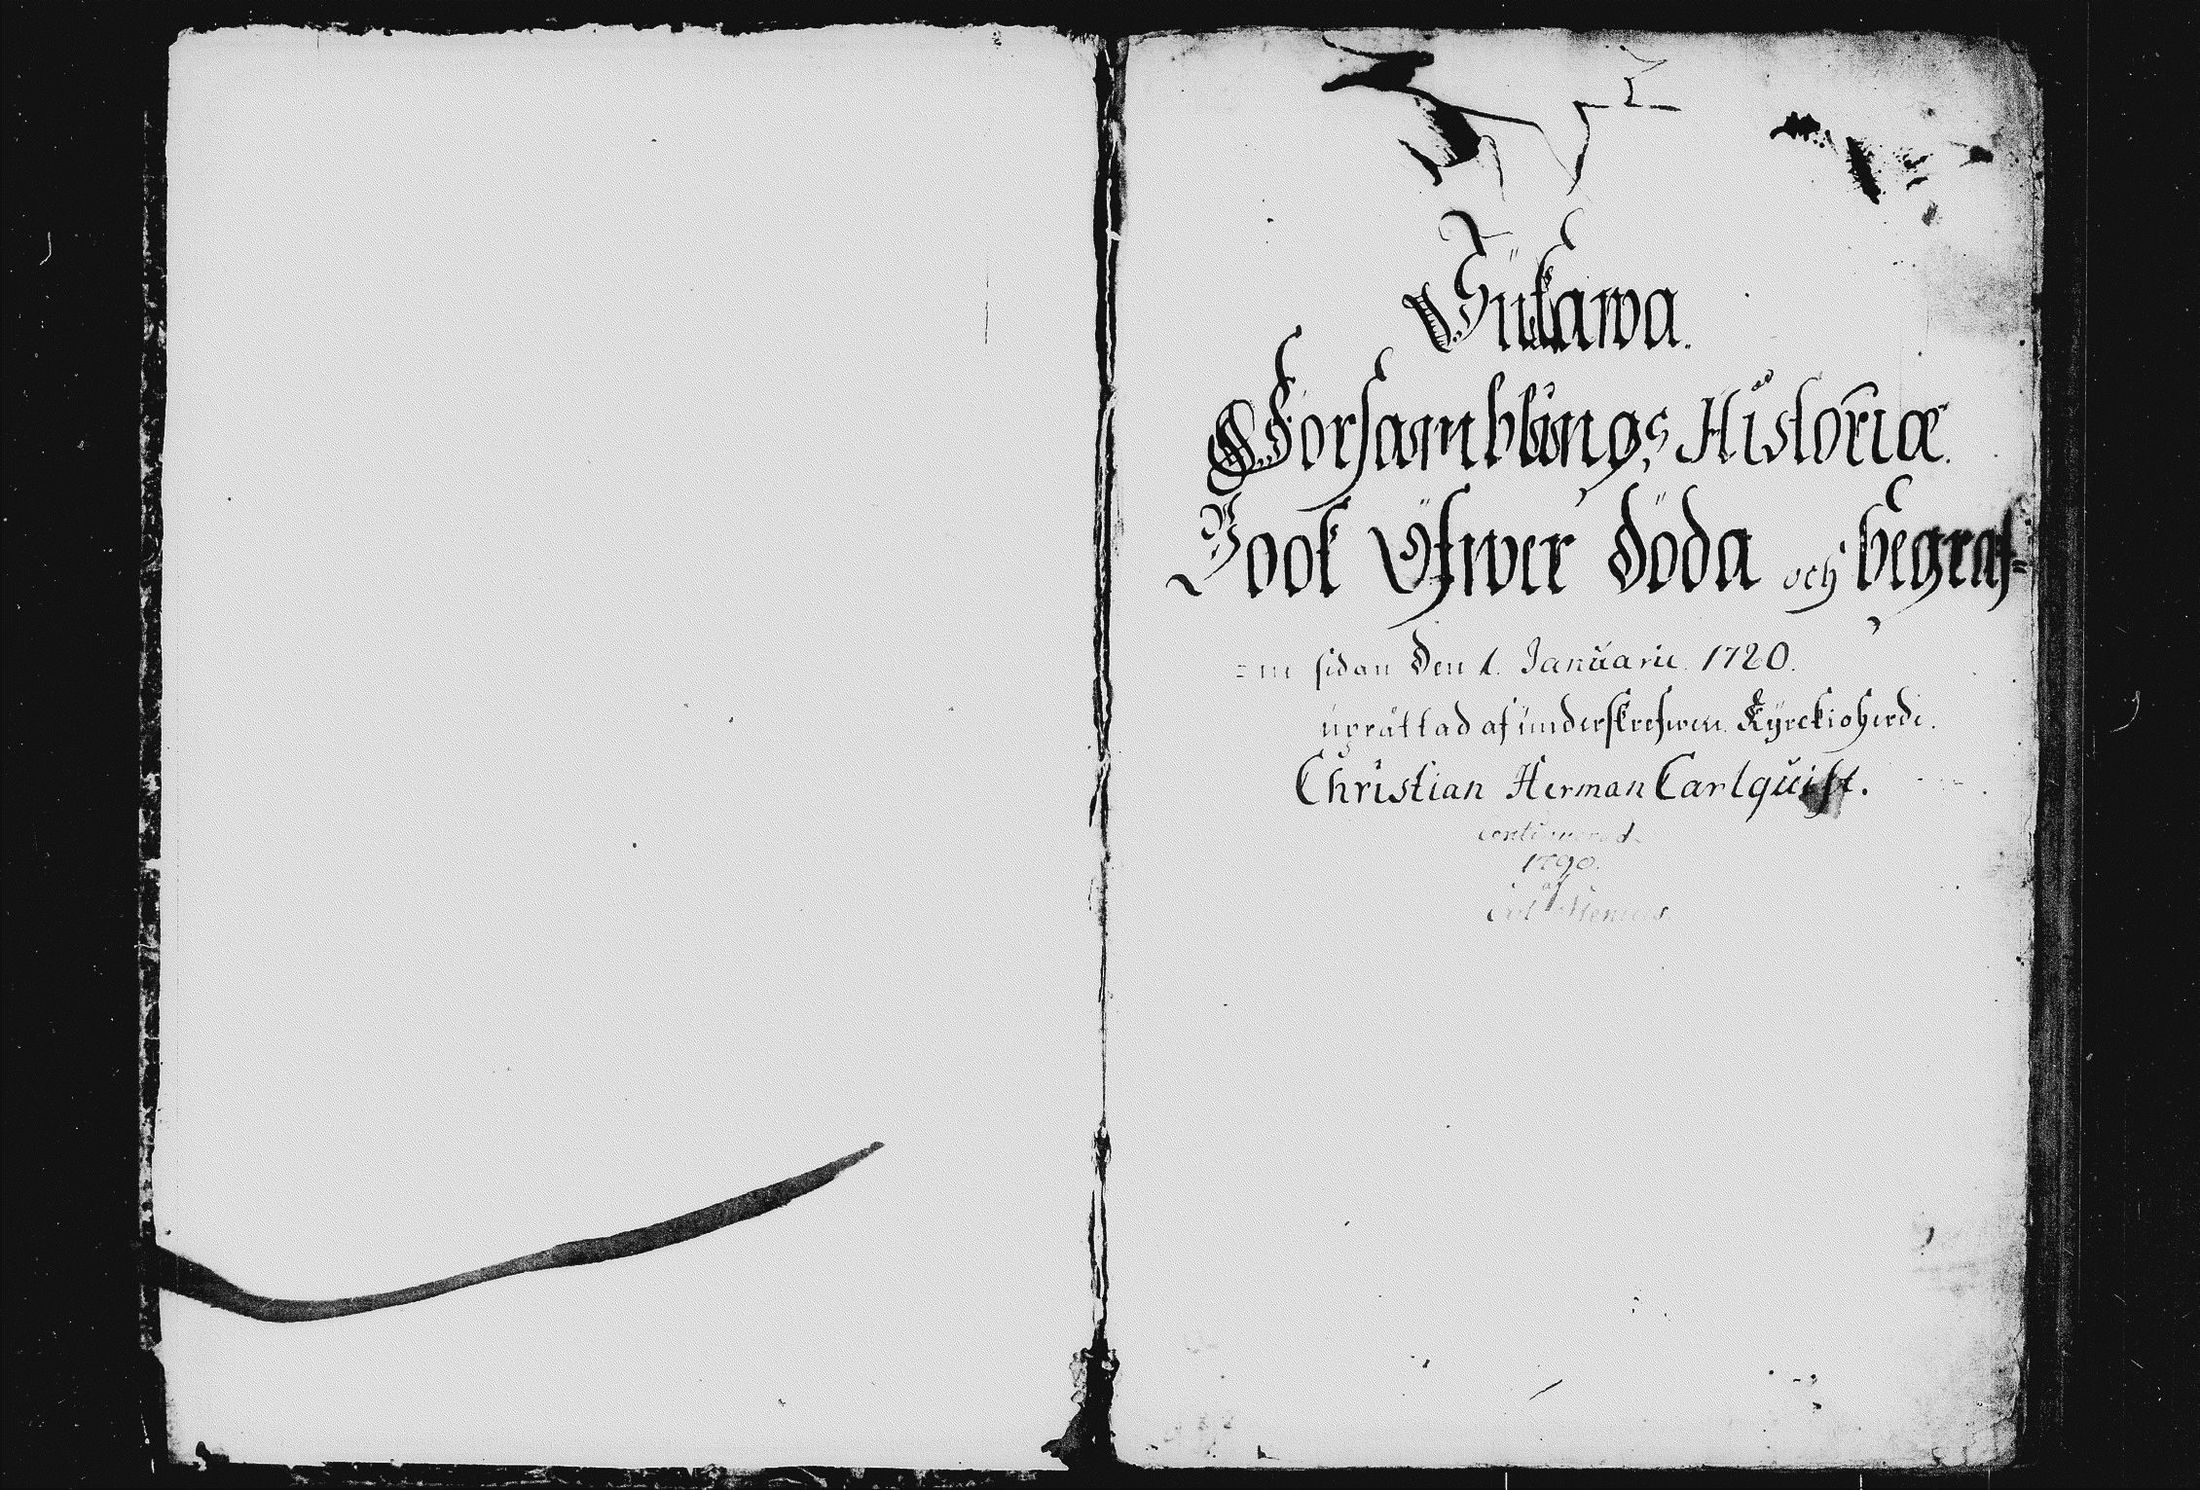 Wükawa.
Forsamblings Historiæ.
Book Öfwer döda och begraf=
=ne sidan den 1. Januarii. 1720.
uprättad af underskrefwen Kyrckioherde.
Christian Herman Carlquist.
continuerad
1790.
af